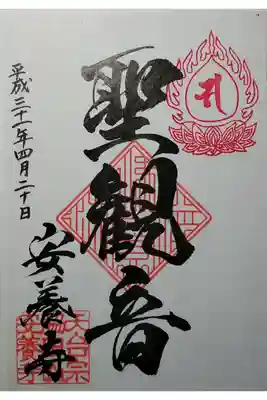 聖観音
安養寺
平成三十一年四月二十日
天台宗